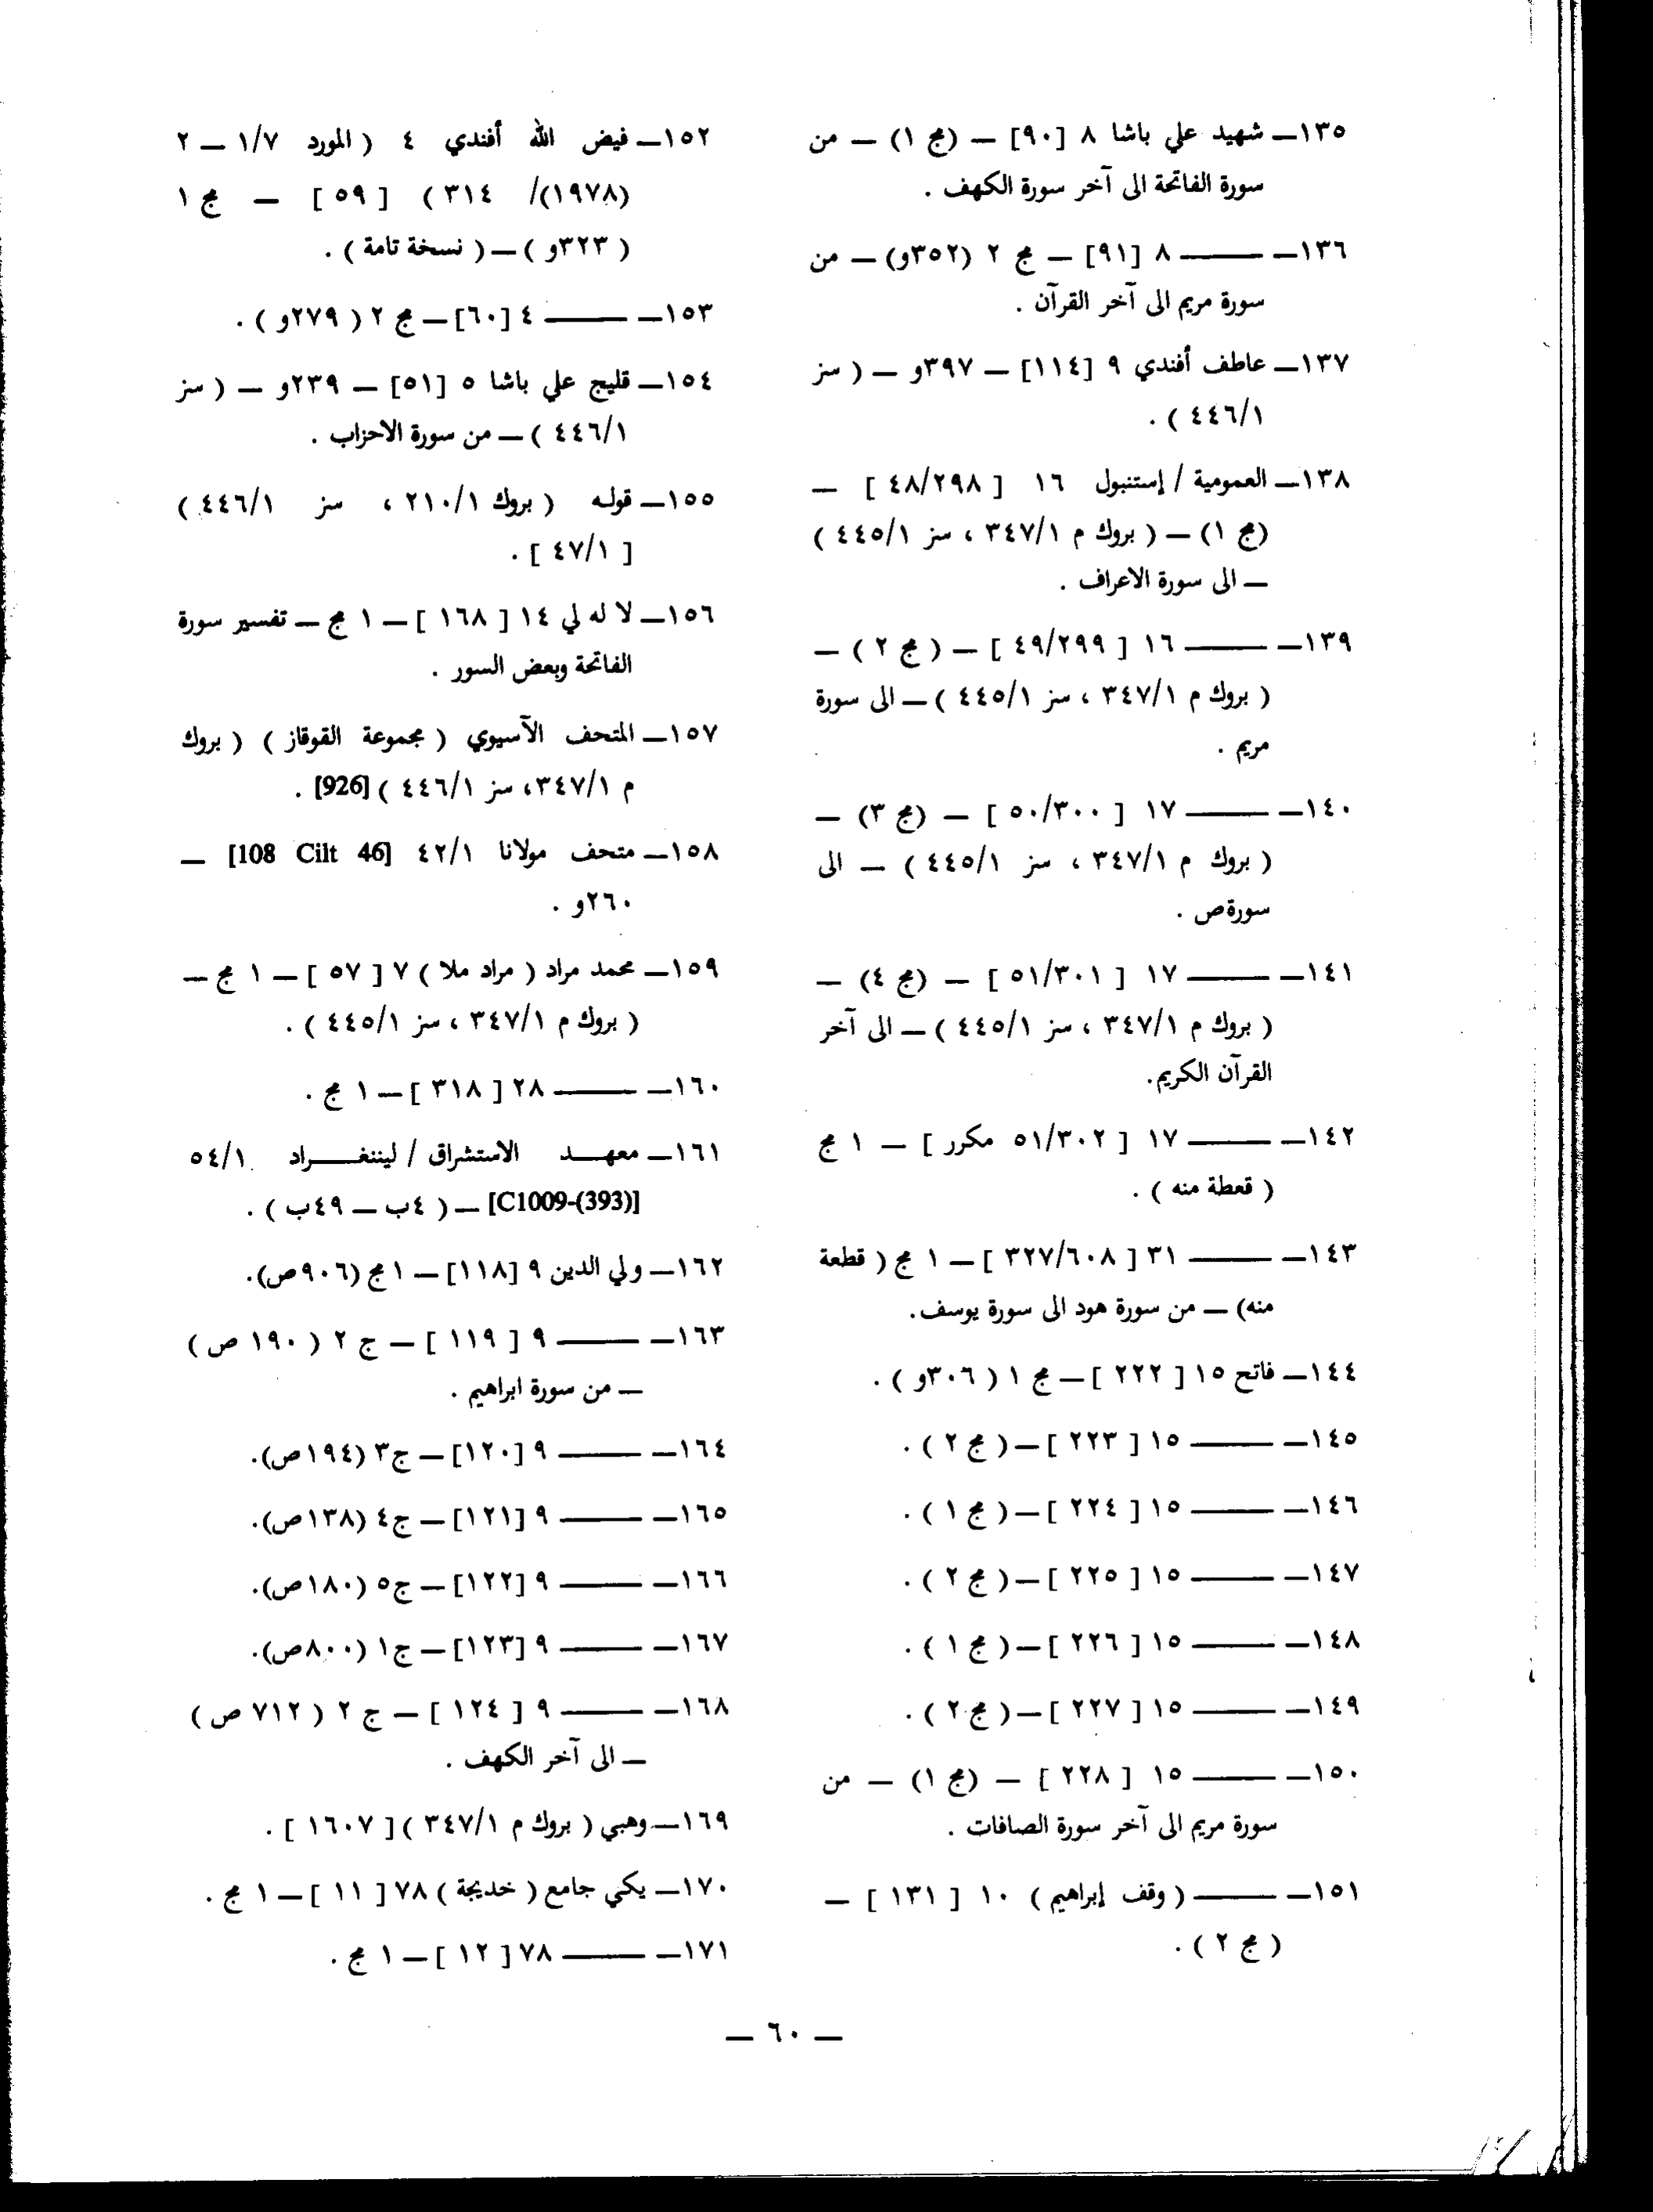 ١٣٥ــ شهيد علي باشا ٨ [٩٠] ــ (مج ١) ــ من
سورة الفاتحة الى آخر سورة الكهف .
١٣٦ــ ـــــــ ٨ [٩١] ــ مج ٢ (٣٥٢و) ــ من
سورة مريم الى آخر القرآن .
١٣٧ــ عاطف أفندي ٩ [١١٤] ــ ٣٩٧و ــ ( سز
٤٤٦/١ ) .
١٣٨ــ العمومية / إستنبول ١٦ [ ٤٨/٢٩٨ ] ــ
(مج ١) ــ ( بروك م ٣٤٧/١ ، سز ٤٤٥/١ )
ــ الى سورة الاعراف .
١٣٩ــ ـــــــ ١٦ [ ٤٩/٢٩٩ ] ــ ( مج ٢ ) ــ
( بروك م ٣٤٧/١ ، سز ٤٤٥/١ ) ــ الى سورة
مريم .
١٤٠ــ ـــــــ ١٧ [ ٥٠/٣٠٠ ] ــ (مج ٣) ــ
( بروك م ٣٤٧/١ ، سز ٤٤٥/١ ) ــ الى
سورةص .
١٤١ــ ـــــــ ١٧ [ ٥١/٣٠١ ] ــ (مج ٤) ــ
( بروك م ٣٤٧/١ ، سز ٤٤٥/١ ) ــ الى آخر
القرآن الكريم.
١٤٢ــ ـــــــ ١٧ [ ٥١/٣٠٢ مكرر ] ــ ١ مج
( قعطة منه ) .
١٤٣ــ ـــــــ ٣١ [ ٣٢٧/٦٠٨ ] ــ ١ مج ( قطعة
منه) ــ من سورة هود الى سورة يوسف.
١٤٤ــ فاتح ١٥ [ ٢٢٢ ] ــ مج ١ ( ٣٠٦و ) .
١٤٥ــ ـــــــ ١٥ [ ٢٢٣ ] ــ ( مج ٢ ) .
١٤٦ــ ـــــــ ١٥ [ ٢٢٤ ] ــ ( مج ١ ) .
١٤٧ــ ـــــــ ١٥ [ ٢٢٥ ] ــ ( مج ٢ ) .
١٤٨ــ ـــــــ ١٥ [ ٢٢٦ ] ــ ( مج ١ ) .
١٤٩ــ ـــــــ ١٥ [ ٢٢٧ ] ــ ( مج ٢ ) .
١٥٠ــ ـــــــ ١٥ [ ٢٢٨ ] ــ (مج ١) ــ من
سورة مريم الى آخر سورة الصافات .
١٥١ــ ـــــــ ( وقف إبراهيم ) ١٠ [ ١٣١ ] ــ
( مج ٢ ) .
١٥٢ــ فيض الله أفندي ٤ ( المورد ١/٧ ــ ٢
(١٩٧٨)/ ٣١٤ ) [ ٥٩ ] ــ مج ١
( ٣٢٣و ) ــ ( نسخة تامة ) .
١٥٣ــ ـــــــ ٤ [٦٠] ــ مج ٢ ( ٢٧٩و ) .
١٥٤ــ قليج علي باشا ٥ [٥١] ــ ٢٣٩و ــ ( سز
٤٤٦/١ ) ــ من سورة الاحزاب .
١٥٥ــ قوله ( بروك ٢١٠/١ ، سز ٤٤٦/١ )
[ ٤٧/١ ] .
١٥٦ــ لا له لي ١٤ [ ١٦٨ ] ــ ١ مج ــ تفسير سورة
الفاتحة وبعض السور .
١٥٧ــ المتحف الآسيوي ( مجموعة القوقاز ) ( بروك
م ٣٤٧/١، سز ٤٤٦/١ ) [926] .
١٥٨ــ متحف مولانا ٤٢/١ [108 Cilt 46] ــ
٢٦٠و .
١٥٩ــ محمد مراد ( مراد ملا ) ٧ [ ٥٧ ] ــ ١ مج ــ
( بروك م ٣٤٧/١ ، سز ٤٤٥/١ ) .
١٦٠ــ ـــــــ ٢٨ [ ٣١٨ ] ــ ١ مج .
١٦١ــ معهـــد الاستشراق / ليننغـــــراد ٥٤/١
[C1009-(393)] ــ ( ٤ب ــ ٤٩ب ) .
١٦٢ــ ولي الدين ٩ [١١٨] ــ ١مج (٩٠٦ص).
١٦٣ــ ـــــــ ٩ [ ١١٩ ] ــ ج ٢ ( ١٩٠ ص )
ــ من سورة ابراهيم .
١٦٤ــ ـــــــ ٩ [١٢٠] ــ ج٣ (١٩٤ص).
١٦٥ــ ـــــــ ٩ [١٢١] ــ ج٤ (١٣٨ص).
١٦٦ــ ـــــــ ٩ [١٢٢] ــ ج٥ (١٨٠ص).
١٦٧ــ ـــــــ ٩ [١٢٣] ــ ج١ (٨٠٠ص).
١٦٨ــ ـــــــ ٩ [ ١٢٤ ] ــ ج ٢ ( ٧١٢ ص )
ــ الى آخر الكهف .
١٦٩ــ وهبي ( بروك م ٣٤٧/١ ) [ ١٦٠٧ ] .
١٧٠ــ يكي جامع ( خديجة ) ٧٨ [ ١١ ] ــ ١ مج .
١٧١ــ ـــــــ ٧٨ [ ١٢ ] ــ ١ مج .
ــ ٦٠ ــ